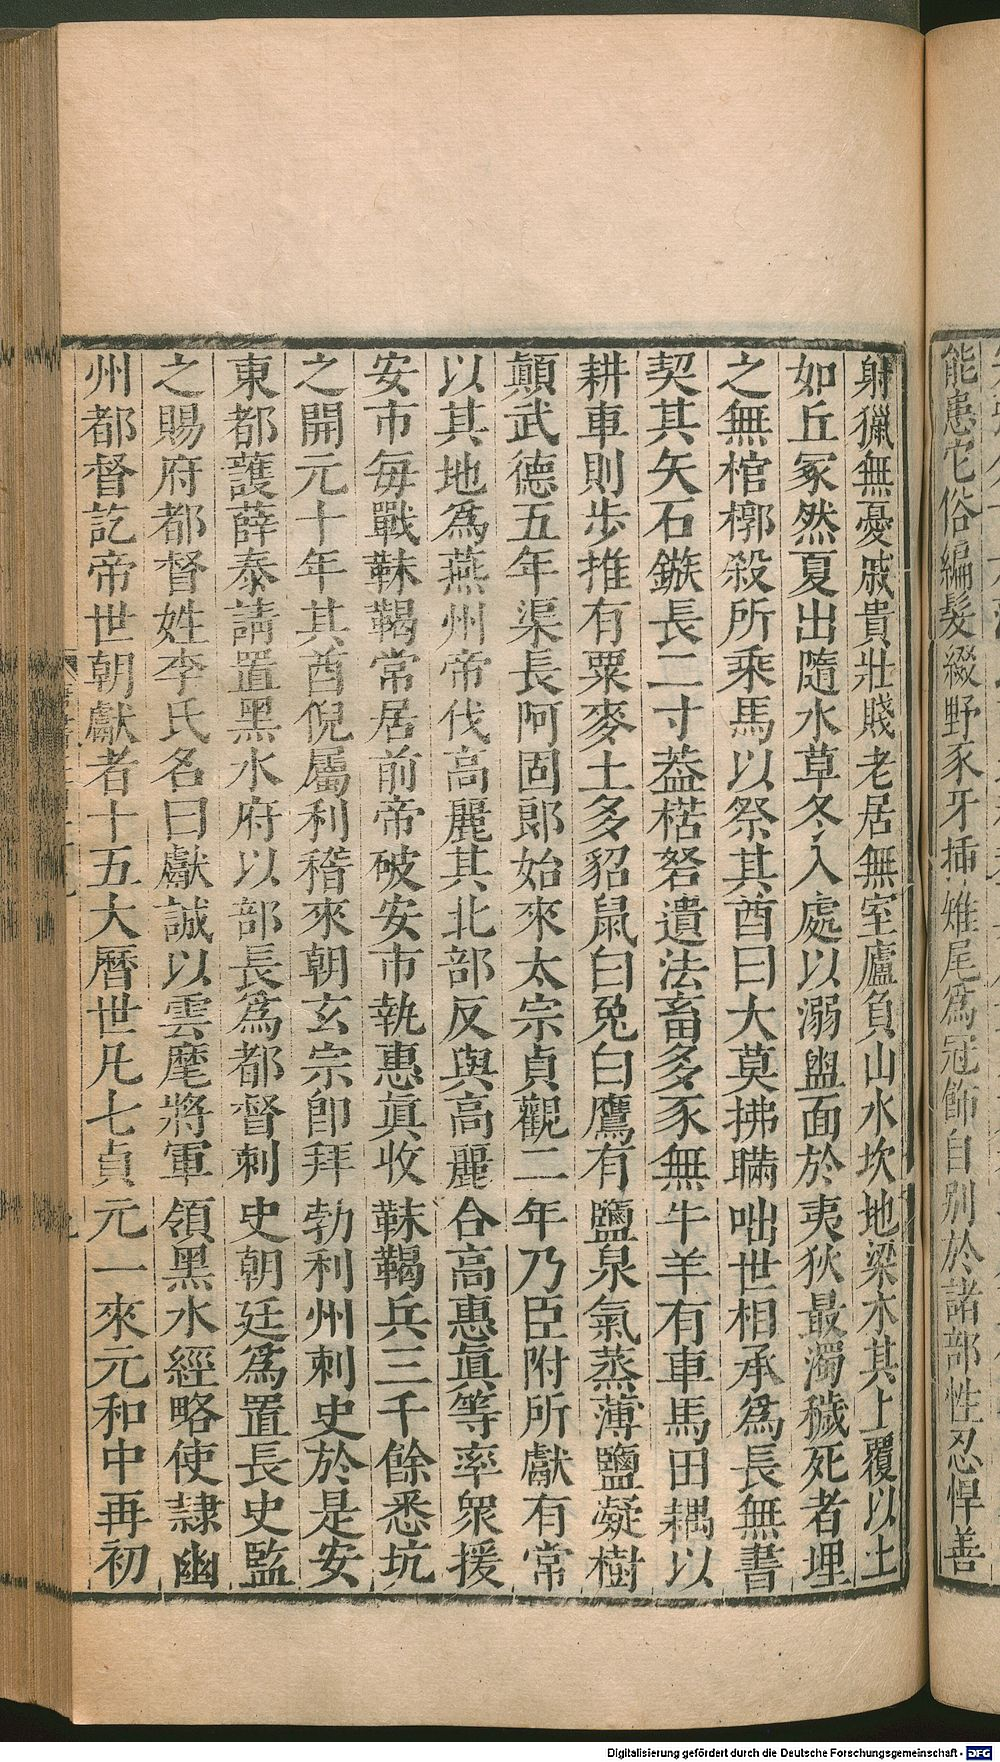 能患它俗編髮綴野豕牙插雉尾爲冠飾自别於諸部性忍悍善
射獵無憂戚貴壯賤老居無室廬負山水坎地梁木其上覆以土
如丘冢然夏出隨水草冬入處以溺盥面於夷狄最濁穢死者埋
之無棺槨殺所乘馬以祭其酋曰大莫拂瞞咄世相承爲長無書
契其矢石鏃長二寸葢楛砮遺法畜多豕無牛羊有車馬田耦以
耕車則步推有粟麥土多貂鼠白兔白鷹有鹽泉氣蒸薄鹽凝樹
顛武德五年渠長阿固郞始來太宗貞觀二年乃臣附所獻有常
以其地爲燕州帝伐高麗其北部反與高麗合高惠眞等率衆援
安市每戰靺鞨常居前帝破安市執惠眞收靺鞨兵三千餘悉坑
之開元十年其酋倪屬利稽來朝玄宗卽拜勃利州刺史於是安
東都護薛泰請置黑水府以部長爲都督刺史朝廷爲置長史監
之賜府都督姓李氏名曰獻誠以雲麾將軍領黑水經略使隷幽
州都督訖帝世朝獻者十五大曆世凡七貞元一來元和中再初
Digitalisierung gefördert durch die Deutsche Forschungsgemeinschaft - DFG